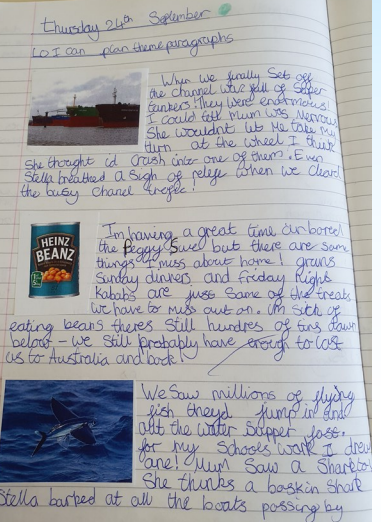 Thursday 24th September
LO I can plan theme paragraphs
When we finally Set off
the channel was full of Super
tankers! They were enormous!
I could tell Mum was Nervous
She wouldnt let Me take my
turn at the wheel I think
She thought id Crash into one of them. Even
Stella breathed a Sigh of relefe when we cleard
the busy Chanel trafec!
HEINZ
BEANZ
Im having a great time on bored
the Peggy Sue but there are some
things I miss about home! grans
Sunday dinners and friday Night
Kababs are just Some of the treats
we have to miss out on. Im Sick of
eating beans theres Still hundres of tins down
below - we Still probably have enough to last
us to Australia and back!
We Saw millions of flying
fish theyd jump in and
out the water Supper fast.
for my Schools work I drew
one! Mum Saw a Shark too
She thinks a baskin Shark
Stella barked at all the boats passing by